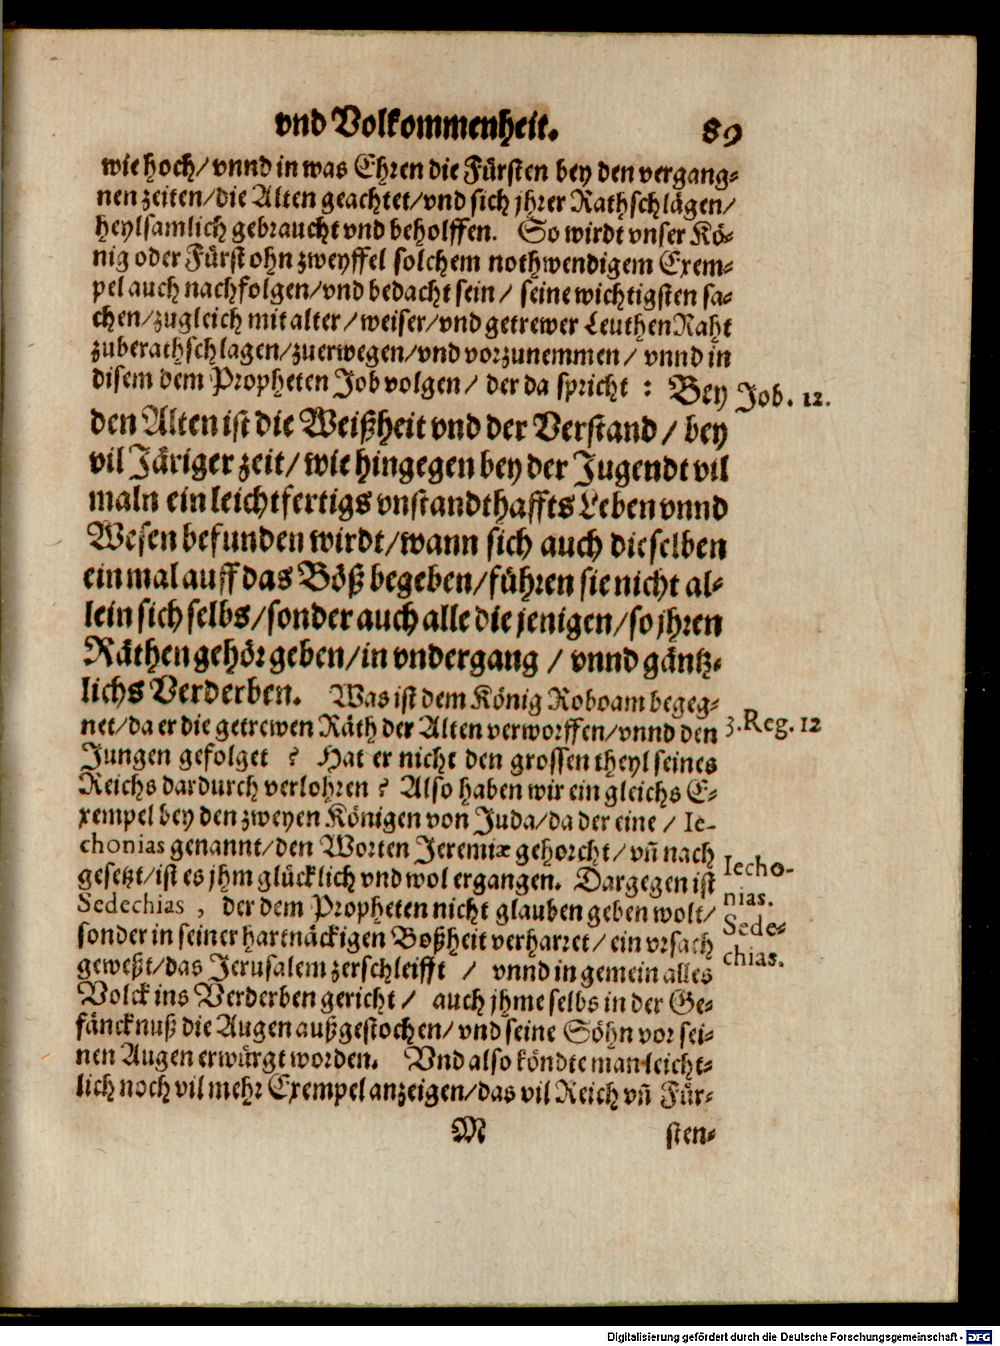 vnd Volkommenheit. 89
wie hoch/ vnnd in was Ehren die Fürsten bey den vergang-
nen zeiten/die Alten geachtet/vnd sich jhrer Rathschlägen/
heylsamlich gebraucht vnd beholffen. So wirdt vnser Kö-
nig oder Fürst ohn zweyffel solchem nothwendigem Exem-
pel auch nachfolgen/vnd bedacht sein/ seine wichtigsten sa-
chen/zugleich mit alter/weiser/vnd getrewer Leuthen Raht
zuberathschlagen/zuerwegen/vnd vorzunemmen/ vnnd in
disem dem Propheten Job volgen/ der da spricht: Bey
Job. 12.
den Alten ist die Weißheit vnd der Verstand/ bey
vil Järiger zeit/wie hingegen bey der Jugendt vil
maln ein leichtfertigs vnstandthaffts Leben vnnd
Wesen befunden wirdt/wann sich auch dieselben
einmal auff das Böß begeben/führen sie nicht al-
lein sich selbs/sonder auch alle die jenigen/so jhren
Räthen gehör geben/in vndergang / vnnd gäntz-
lichs Verderben. Was ist dem König Roboam begeg-
net/da er die getrewen Räth der Alten verworffen/vnnd den
3.Reg. 12
Jungen gefolget ? Hat er nicht den grossen theyl seines
Reichs dardurch verlohren? Also haben wir ein gleichs E-
xempel bey den zweyen Königen von Juda/da der eine/ Ie-
chonias genannt/den Worten Jeremiæ gehorcht/ vñ nach
gesetzt/ist es jhm glücklich vnd wol ergangen. Dargegen ist
Iecho-
nias.
Sedechias, der dem Propheten nicht glauben geben wolt/
sonder in seiner hartnäckigen Boßheit verharret/ ein vrsach
Sede-
chias.
geweßt/das Jerusalem zerschleifft / vnnd in gemein alles
Volck ins Verderben gericht/ auch jhme selbs in der Ge-
fäncknuß die Augen außgestochen/ vnd seine Söhn vor sei-
nen Augen erwürgt worden. Vnd also köndte man leicht-
lich noch vil mehr Exempel anzeigen/das vil Reich vñ Für-
M sten-
Digitalisierung gefördert durch die Deutsche Forschungsgemeinschaft - DFG